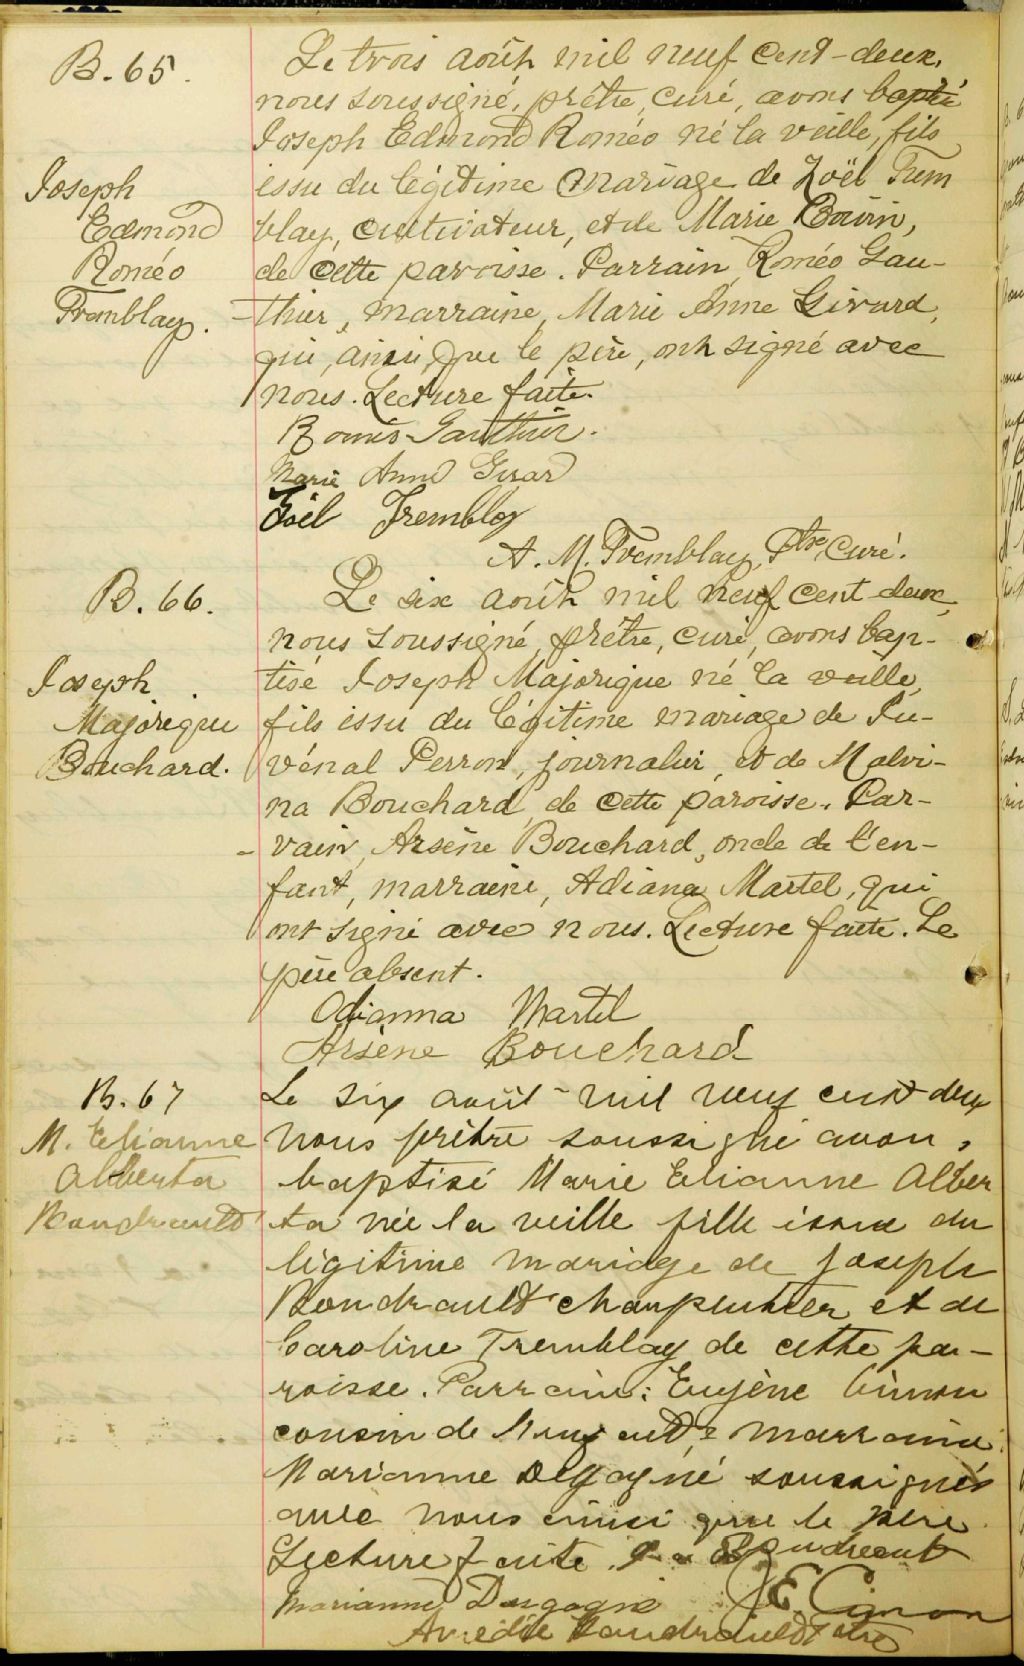 B. 65.
Joseph
Edmond
Roméo
Tremblay.
Le trois août mil neuf cent-deux,
nous soussigné, prêtre, curé, avons baptisé
Joseph Edmond Roméo né la veille, fils
issu du légitime mariage de Zoël Trem
blay, cultivateur, et de Marie Boivin,
de cette paroisse. Parrain, Roméo Gau-
-thier, marraine, Marie Anne Girard,
qui, ainsi que le père, ont signé avec
nous. Lecture faite.
Roméo Gauthier.
Marie Anne Girard
Joël Tremblay
A. M. Tremblay, Ptre, Curé.
B. 66.
Joseph
Majorique
Bouchard.
Le six août mil neuf cent deux,
nous soussigné, prêtre, curé, avons bap-
tisé Joseph Majorique né la veille,
fils issu du légitime mariage de Ju-
vénal Perron, journalier, et de Malvi-
na Bouchard, de cette paroisse. Par-
- rain, Arsène Bouchard, oncle de l'en-
fant, marraine, Adiana Martel, qui
ont signé avec nous. Lecture faite. Le
père absent.
Adianna Martel
Arsène Bouchard
B. 67
M. Elianne
Alberta
Boudreault
Le six août mil neuf cent deux
nous prêtre soussigné avons
baptisé Marie Elianne Alber
ta née la veille fille issue du
légitime mariage de Joseph
Boudreault charpentier et de
Caroline Tremblay de cette pa-
roisse. Parrain: Eugène Cimon
cousin de l'enfant, marraine:
Marianne Degagné soussignés
avec nous ainsi que le père.
Lecture faite. Boudreault
Marianne Dégagné E. Cimon
Amédée Boudreault Ptre